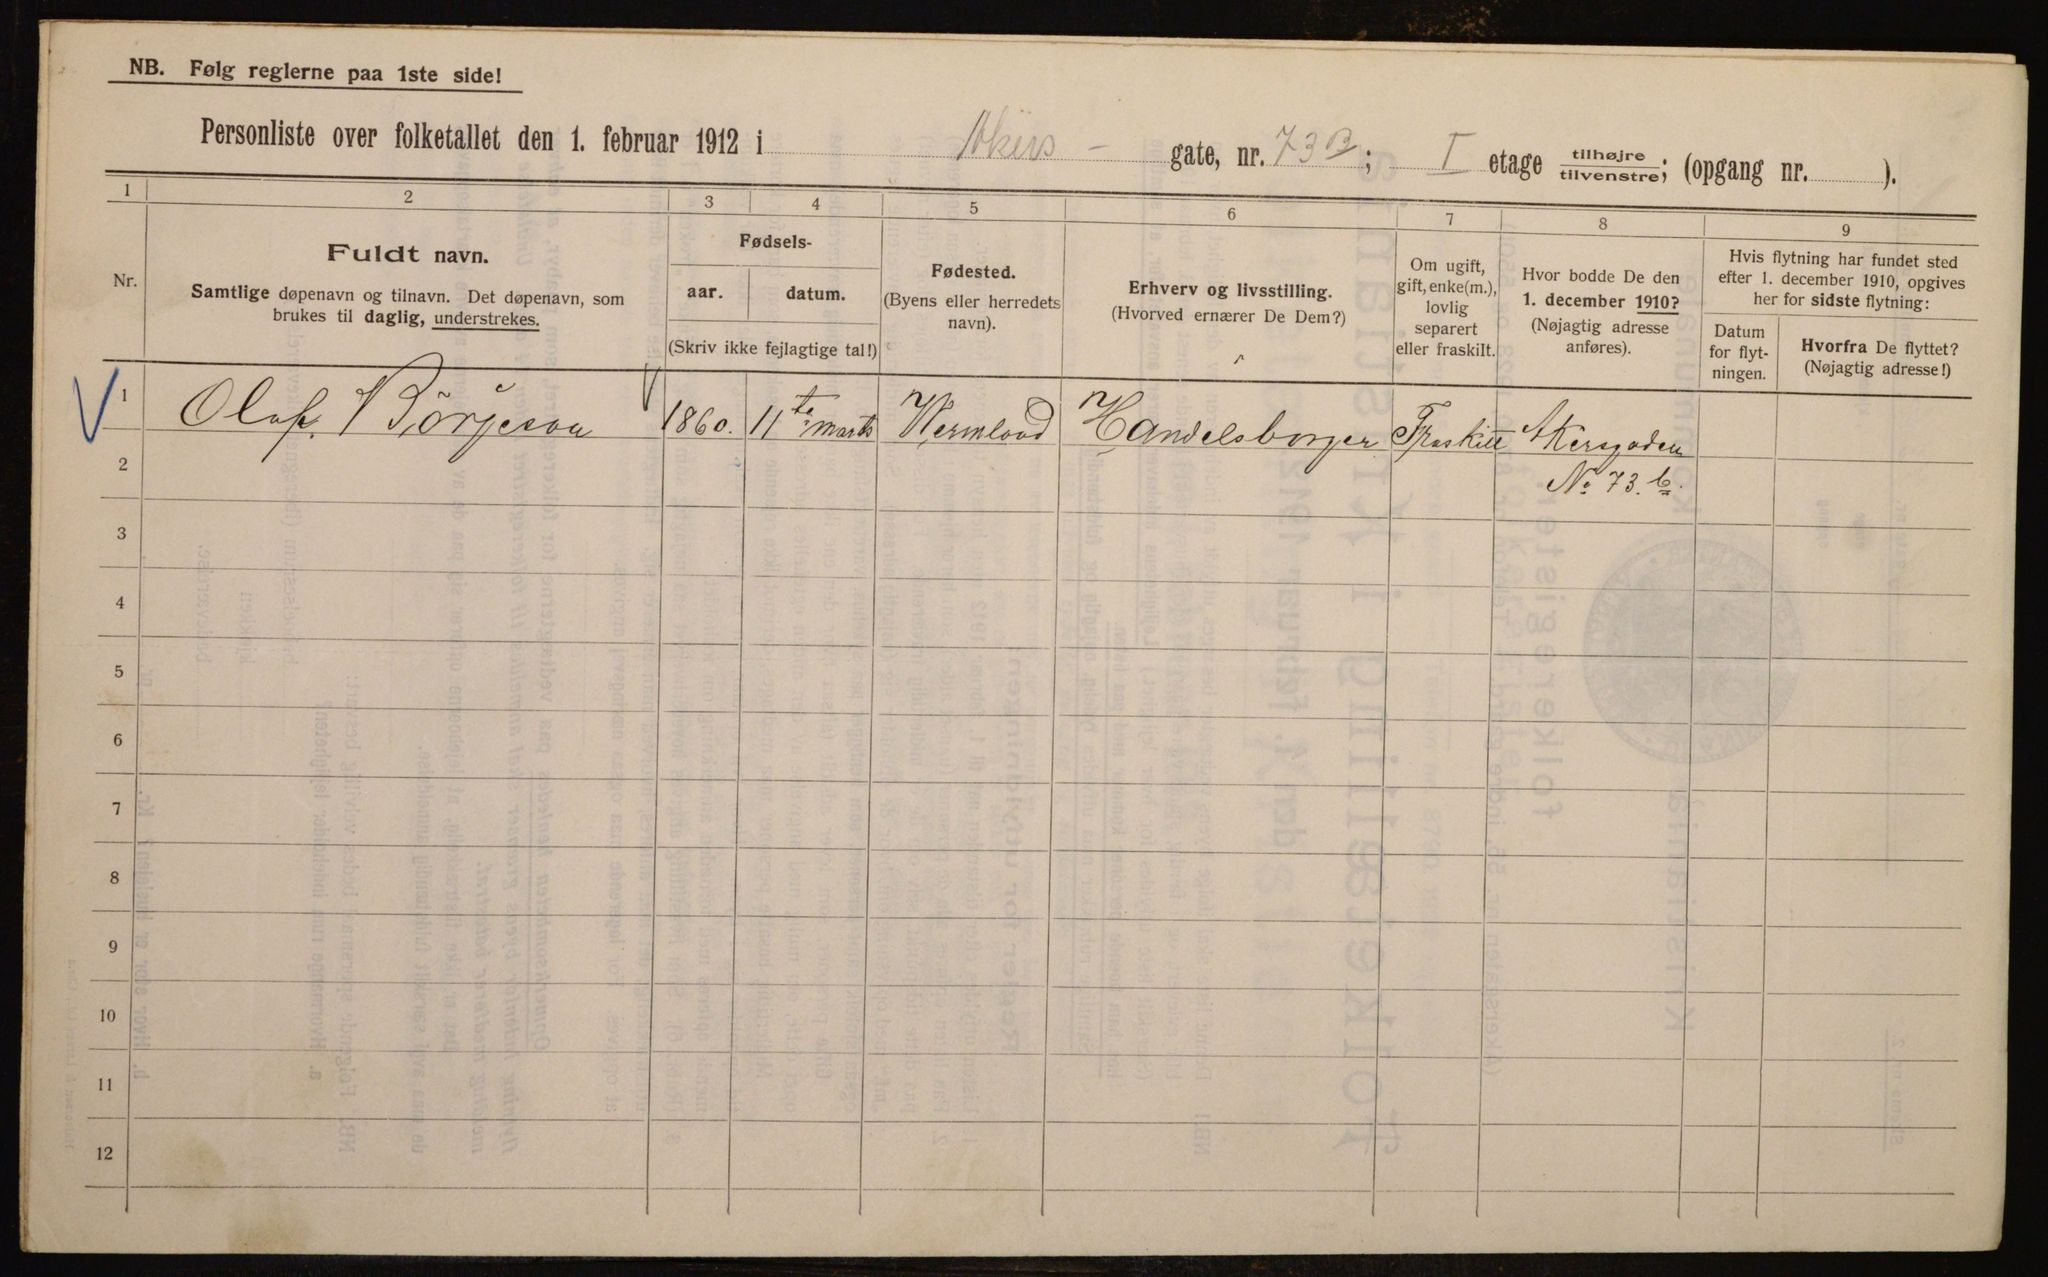 NB. Følg reglerne paa 1ste side!
Personliste over folketallet den 1. februar 1912 i Akers - gate, nr. 73B; I etage tilhøjre tilvenstre; (opgang nr. ).
1 2 3 4 5 6 7 8 9
Nr.
Fuldt navn.
Samtlige døpenavn og tilnavn. Det døpenavn, som
brukes til daglig, understrekes.
Fødsels-
aar. datum.
(Skriv ikke fejlagtige tal!)
Fødested.
(Byens eller herredets
navn).
Erhverv og livsstilling.
(Hvorved ernærer De Dem?)
Om ugift,
gift, enke(m.),
lovlig
separert
eller fraskilt.
Hvor bodde De den
1. december 1910?
(Nøjagtig adresse
anføres).
Hvis flytning har fundet sted
efter 1. december 1910, opgives
her for sidste flytning:
Datum
for flyt-
ningen.
Hvorfra De flyttet?
(Nøjagtig adresse!)
1 Olof Börjeson 1860. 11te marts Wermland Handelsborger Fraskilt Akersgaden
No 73.b.
2
3
4
5
6
7
8
9
10
11
12